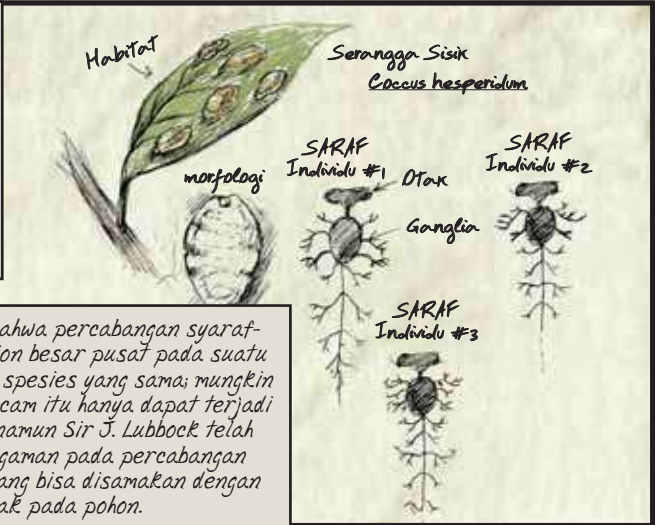 Habitat
Serangga Sisik
Coccus hesperidum
morfologi
SARAF
Individu #1
Otak
Ganglia
SARAF
Individu #2
SARAF
Individu #3
ahwa percabangan syaraf-
ion besar pusat pada suatu
spesies yang sama; mungkin
cam itu hanya dapat terjadi
namun Sir J. Lubbock telah
gaman pada percabangan
ang bisa disamakan dengan
ak pada pohon.